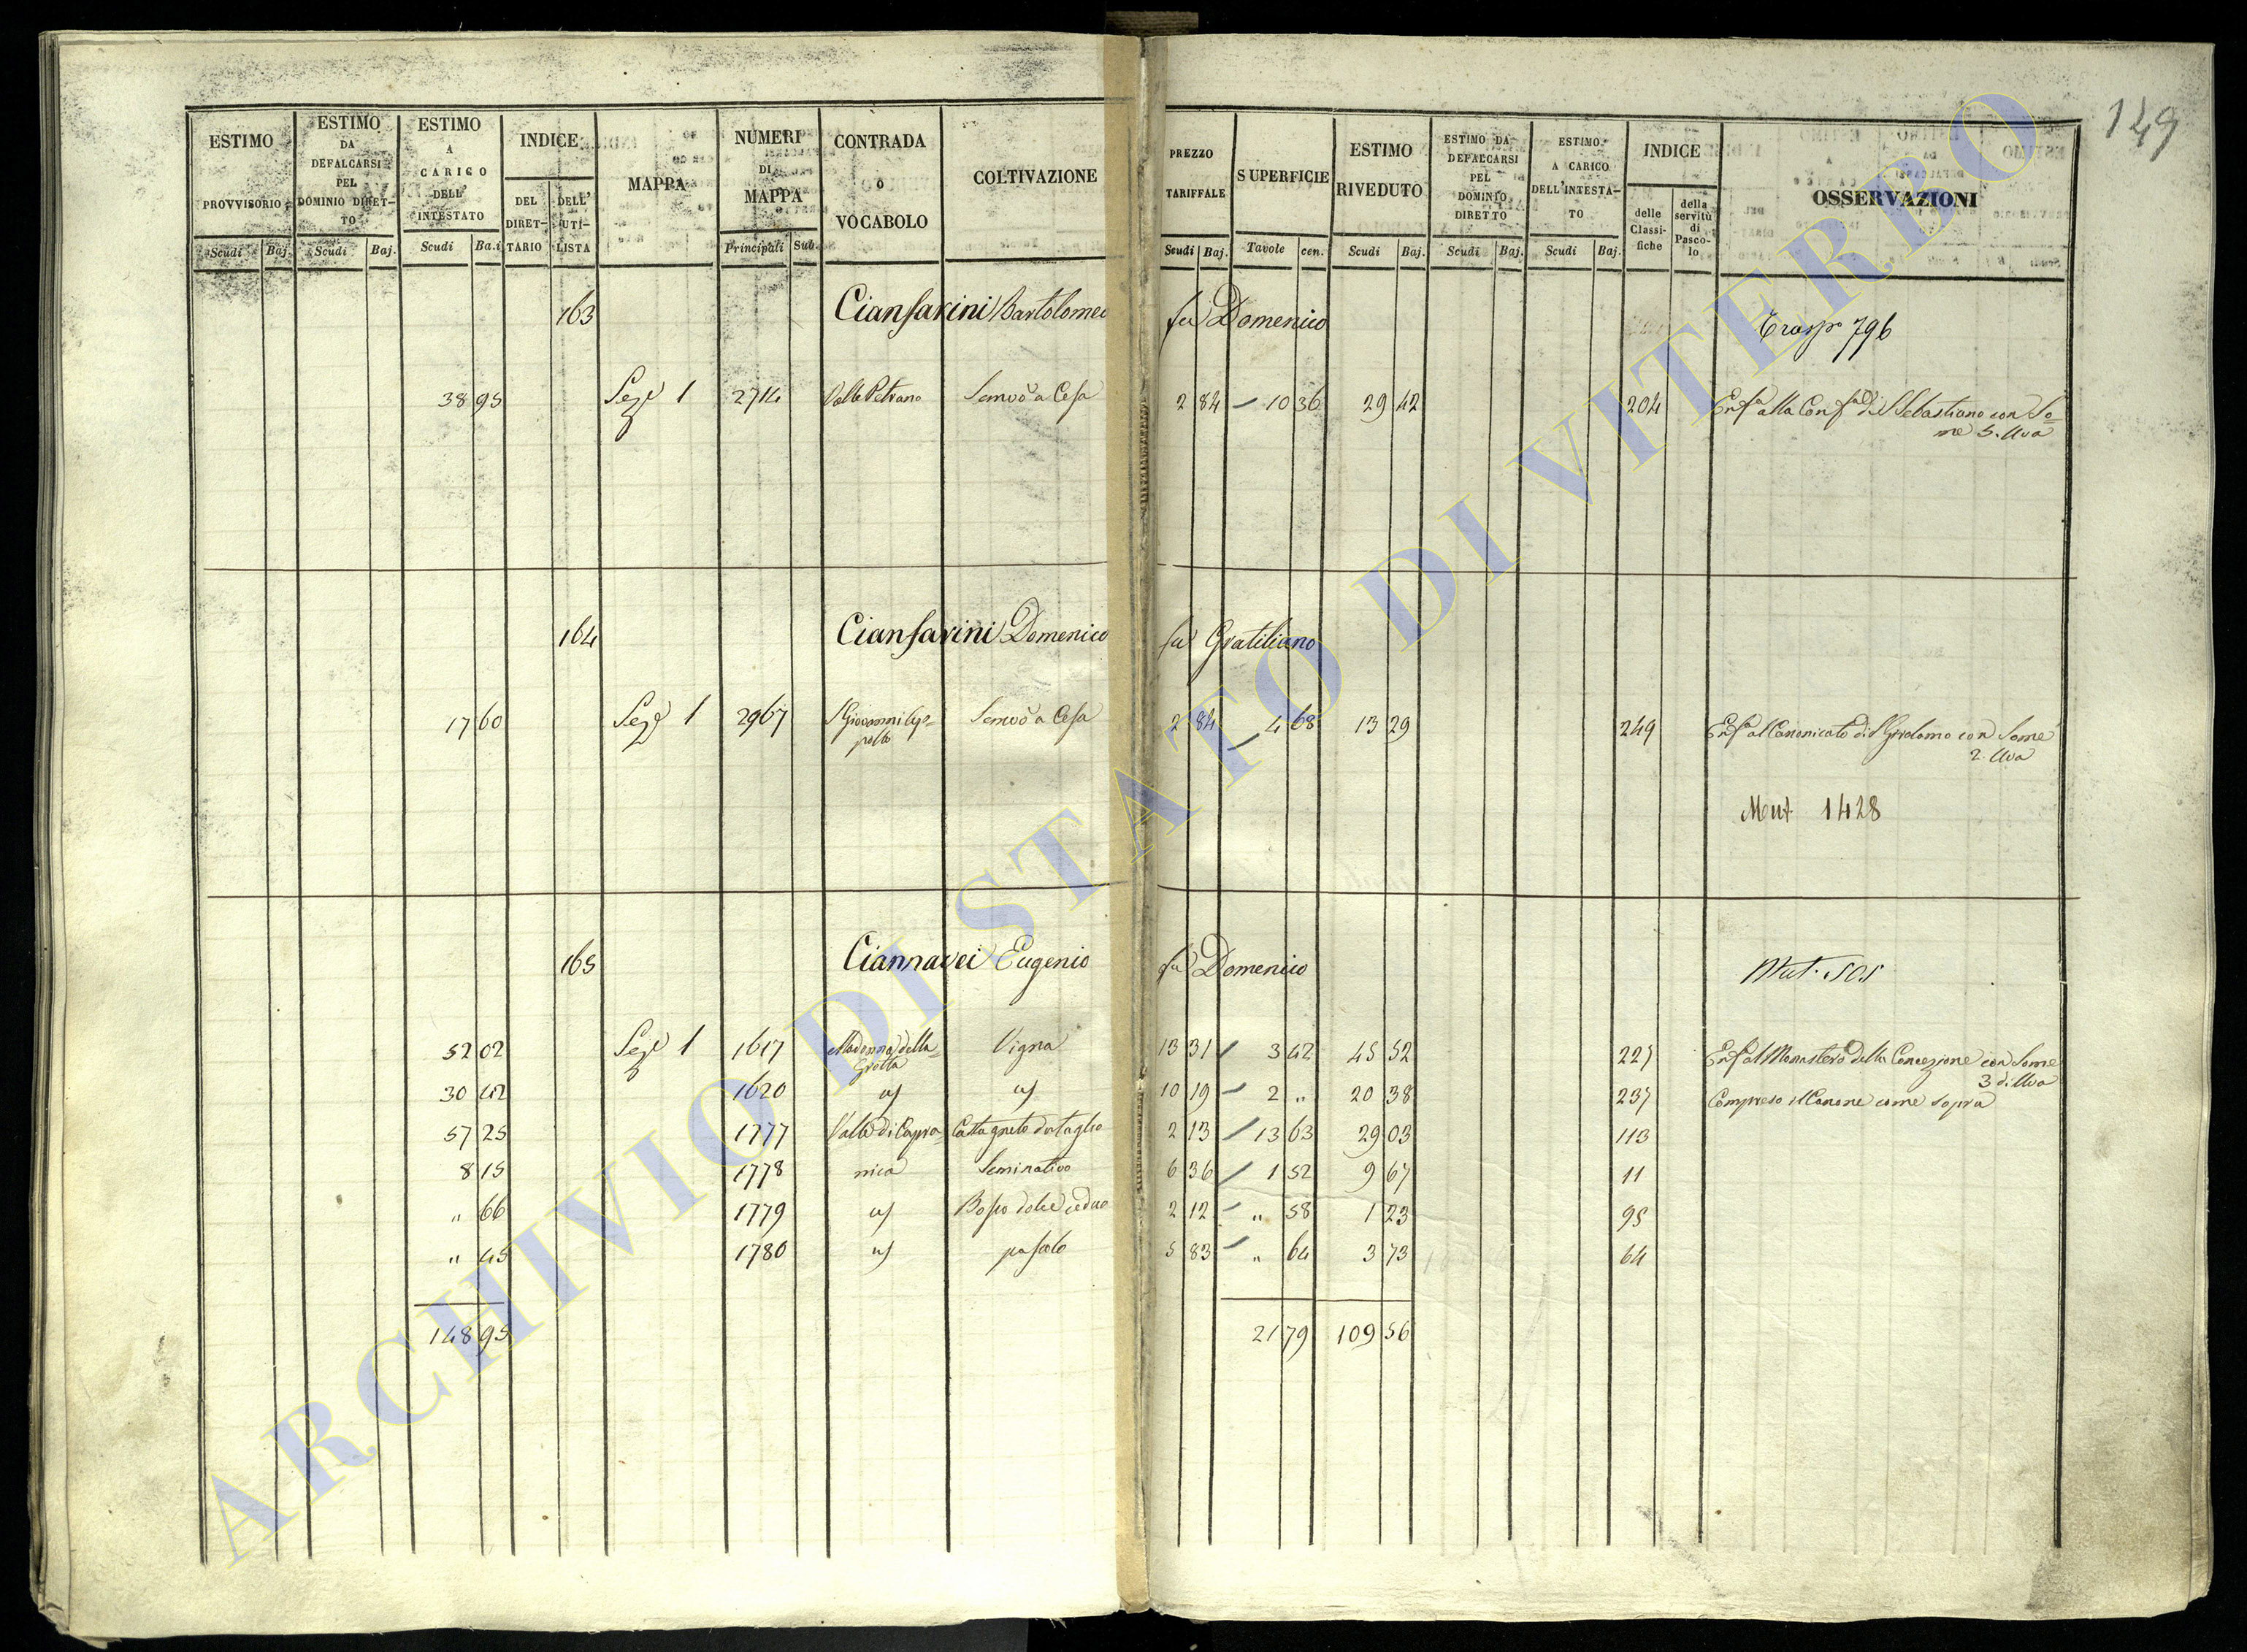 149
ESTIMO PROVVISORIO
Scudi Baj.
ESTIMO DA DEFALCARSI PEL DOMINIO DIRET-TO
Scudi Baj.
ESTIMO A CARICO DELL' INTESTATO
Scudi Ba.i
INDICE
DEL DIRET-TARIO
DELL' UTI-LISTA
MAPPA
NUMERI DI MAPPA
Principali Sub.
CONTRADA O VOCABOLO
COLTIVAZIONE
PREZZO TARIFFALE
Scudi Baj.
SUPERFICIE
Tavole cen.
ESTIMO RIVEDUTO
Scudi Baj.
ESTIMO DA DEFALCARSI PEL DOMINIO DIRETTO
Scudi Baj.
ESTIMO A CARICO DELL'INTESTA-TO
Scudi Baj.
INDICE
delle Classi-fiche
della servitù di Pasco-lo
OSSERVAZIONI
163 Cianfarini Bartolomeo fu Domenico
Trasp.o 796
38 95 Sez.e 1 2714 Valle Petrano Semvo a Cesa 2 84 – 10 36 29 42 204 Enfa alla Confa di S Sebastiano con So=
me 5. Uva
164 Cianfarini Domenico fu Gratiliano
17 60 Sez.e 1 2967 S Giovanni Cap- 2 84 – 4 68 13 29 249 Enfa al Canonicato di S Girolamo con Some
Semvo a Cesa
2. Uva
Mut 1428
165 Ciannavei Eugenio fu Domenico
Mut. 505
52 02 Sez.e 1 1617 Madonna della Grotta Vigna 13 31 – 3 42 45 52 227 Enfa al Monastero della Concezione con Some
3 di Uva
30 42 1620 " " 10 19 – 2 " 20 38 237 Compreso il Canone come sopra
57 25 1777 Valle di Capra- Castagneto da taglio 2 13 – 13 63 29 03 113
8 15 1778 nica Seminativo 6 36 – 1 52 9 67 11
" 66 1779 " Bosco dolce ceduo 2 12 – " 58 1 23 95
" 45 1780 " pascolo 5 83 – " 64 3 73 64
148 95 21 79 109 56
ARCHIVIO DI STATO DI VITERBO